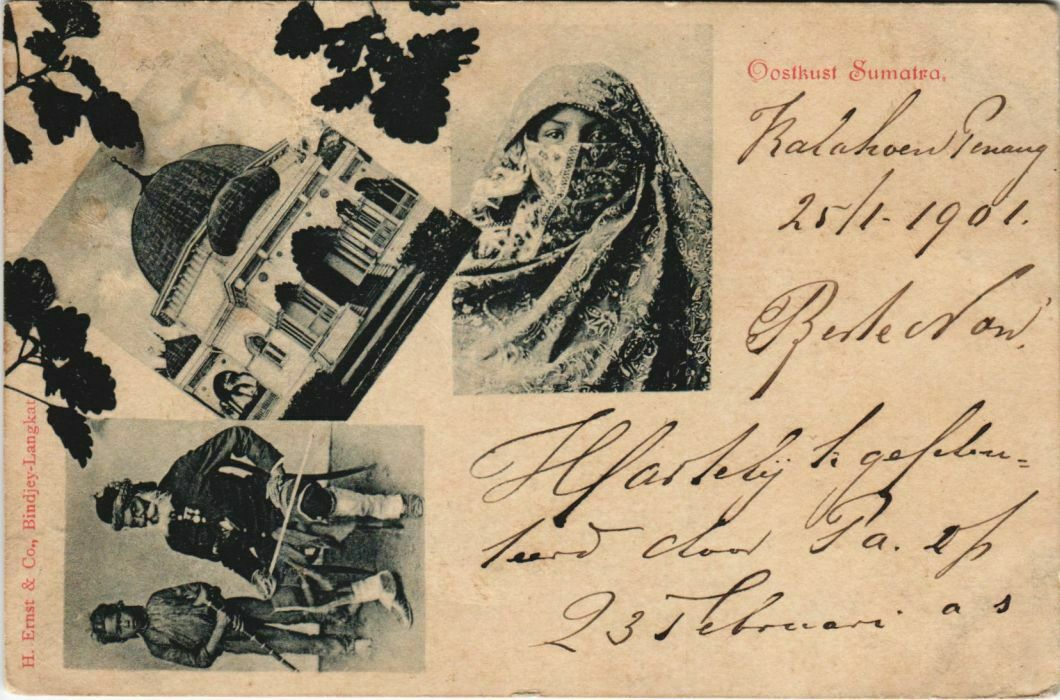 Oostkust Sumatra,
Penang
25/1 - 1901.
Beste
Hartelijk gefeli-
teerd door Pa. op
23 Februari a s
H. Ernst & Co., Bindjey-Langkat